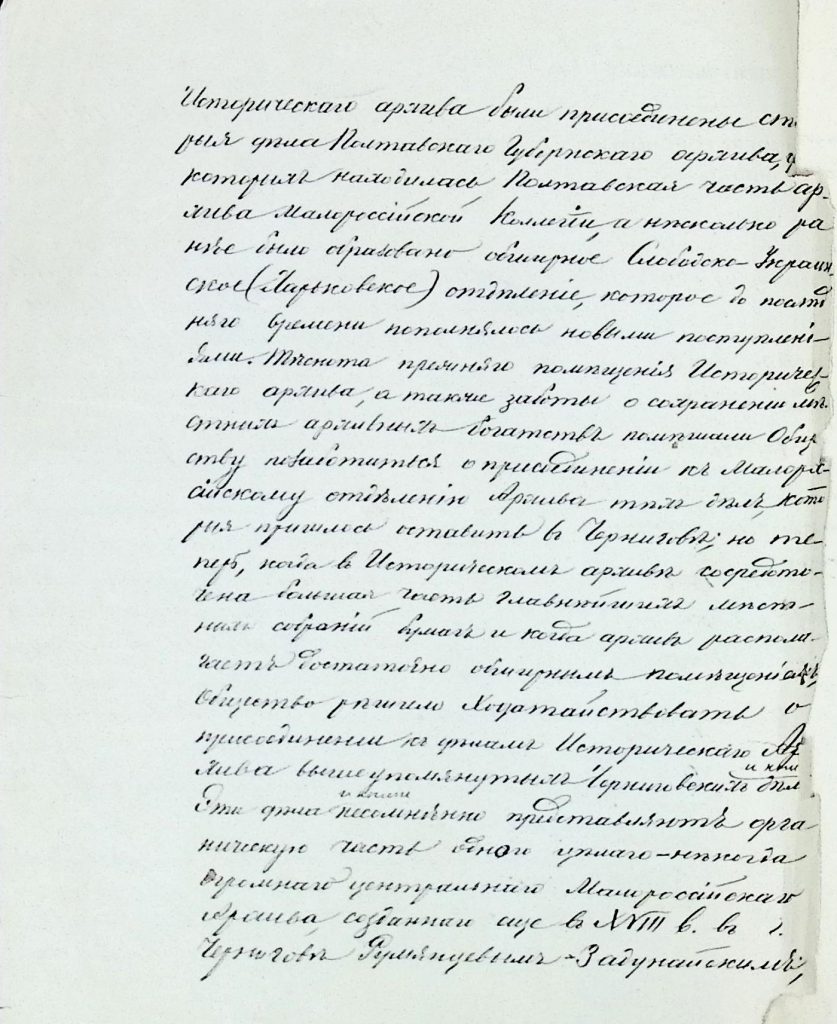 Историческаго архива были присоединены ста
рыя дѣла Полтавскаго Губернскаго архива, в
которыхъ находилась Полтавская часть ар-
хива Малороссійской Коллегіи, а нѣсколько ра
нѣе было образовано обширное Слободско-Украин
ское (Харьковское) отдѣленіе, которое до послѣд
няго времени пополнялось новыми поступлені-
ями. Тѣснота прежняго помѣщенія Историчес-
каго архива, а также заботы о сохраненіи мѣ
стныхъ архивныхъ богатствъ помѣшали Общ
ству позаботиться о присоединеніи къ Малорос-
сійскому отдѣленію Архива тѣхъ дѣлъ, кото
рыя пришлось оставить въ Черниговѣ; но те-
перь, когда въ Историческомъ архивѣ сосредото-
чена большая часть главнѣйшихъ мѣст-
ныхъ собраній бумагъ и когда архивъ распола-
гаетъ достаточно обширнымъ помѣщеніемъ,
Общество рѣшило ходатайствовать о
присоединеніи къ дѣламъ Историческаго Ар
хива вышеупомянутыхъ Черниговскихъ дѣлъ
Эти дѣла несомнѣнно представляютъ орга
ническую часть одного цѣлаго - нѣкогда
огромнаго центральнаго Малороссійскаго
Архива, созданнаго еще въ XVIII в. въ г.
Черниговѣ Румянцевымъ-Задунайскимъ,